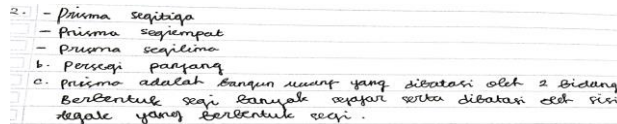 2. - Prisma segitiga
- Prisma segiempat
- Prisma segilima
b. Persegi panjang
c. prisma adalah bangun ruang yang dibatasi oleh 2 bidang
Berbentuk segi banyak sejajar serta dibatasi oleh sisi
tegak yang berbentuk segi.